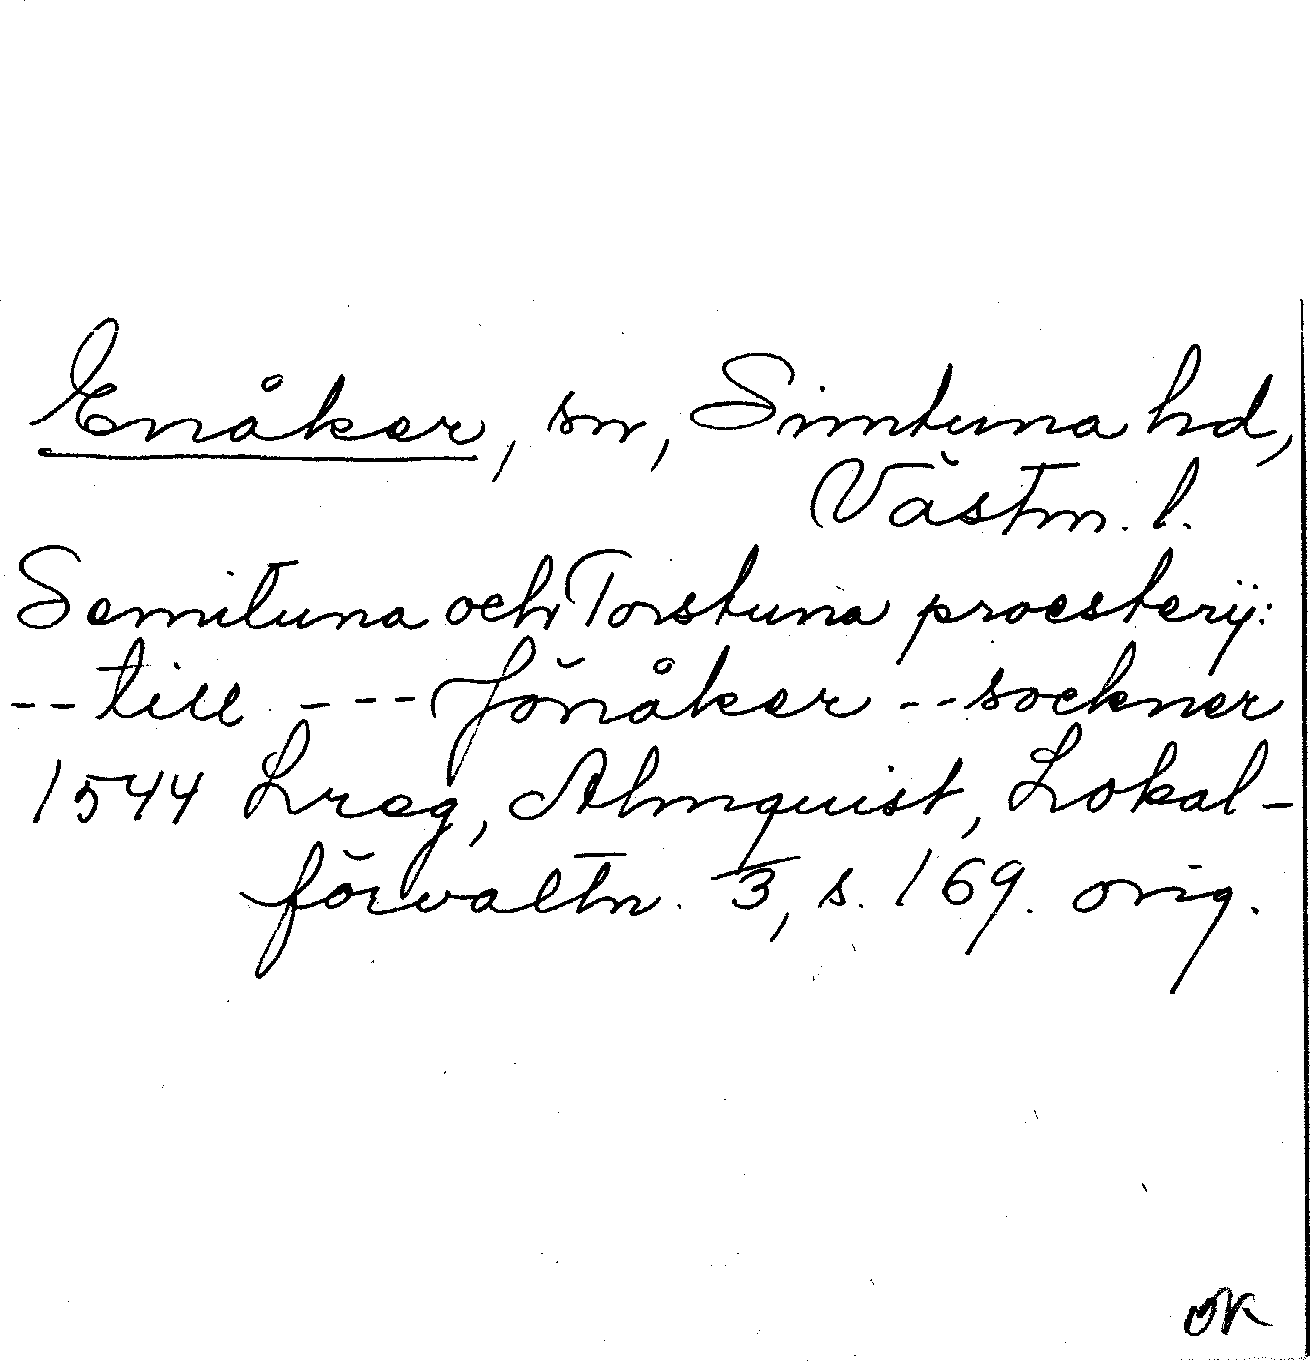 Enåker, sn, Simtuna hd,
Västm. l.
Semituna och Torstuna proestery:
-- till --- Jönåker -- sockner
1544 Lreg, Almquist, Lokal-
förvaltn. 3, s. 169. orig.
OK